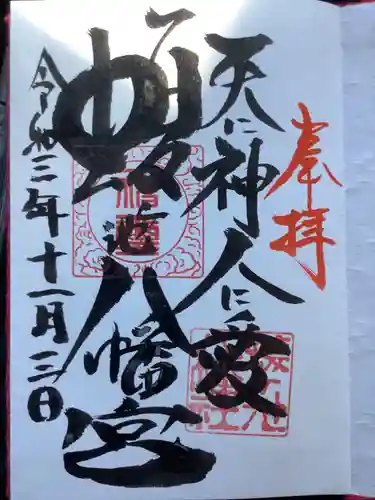 奉拝
天に神人に愛
蝮ヶ池八幡宮
令和三年十一月三日